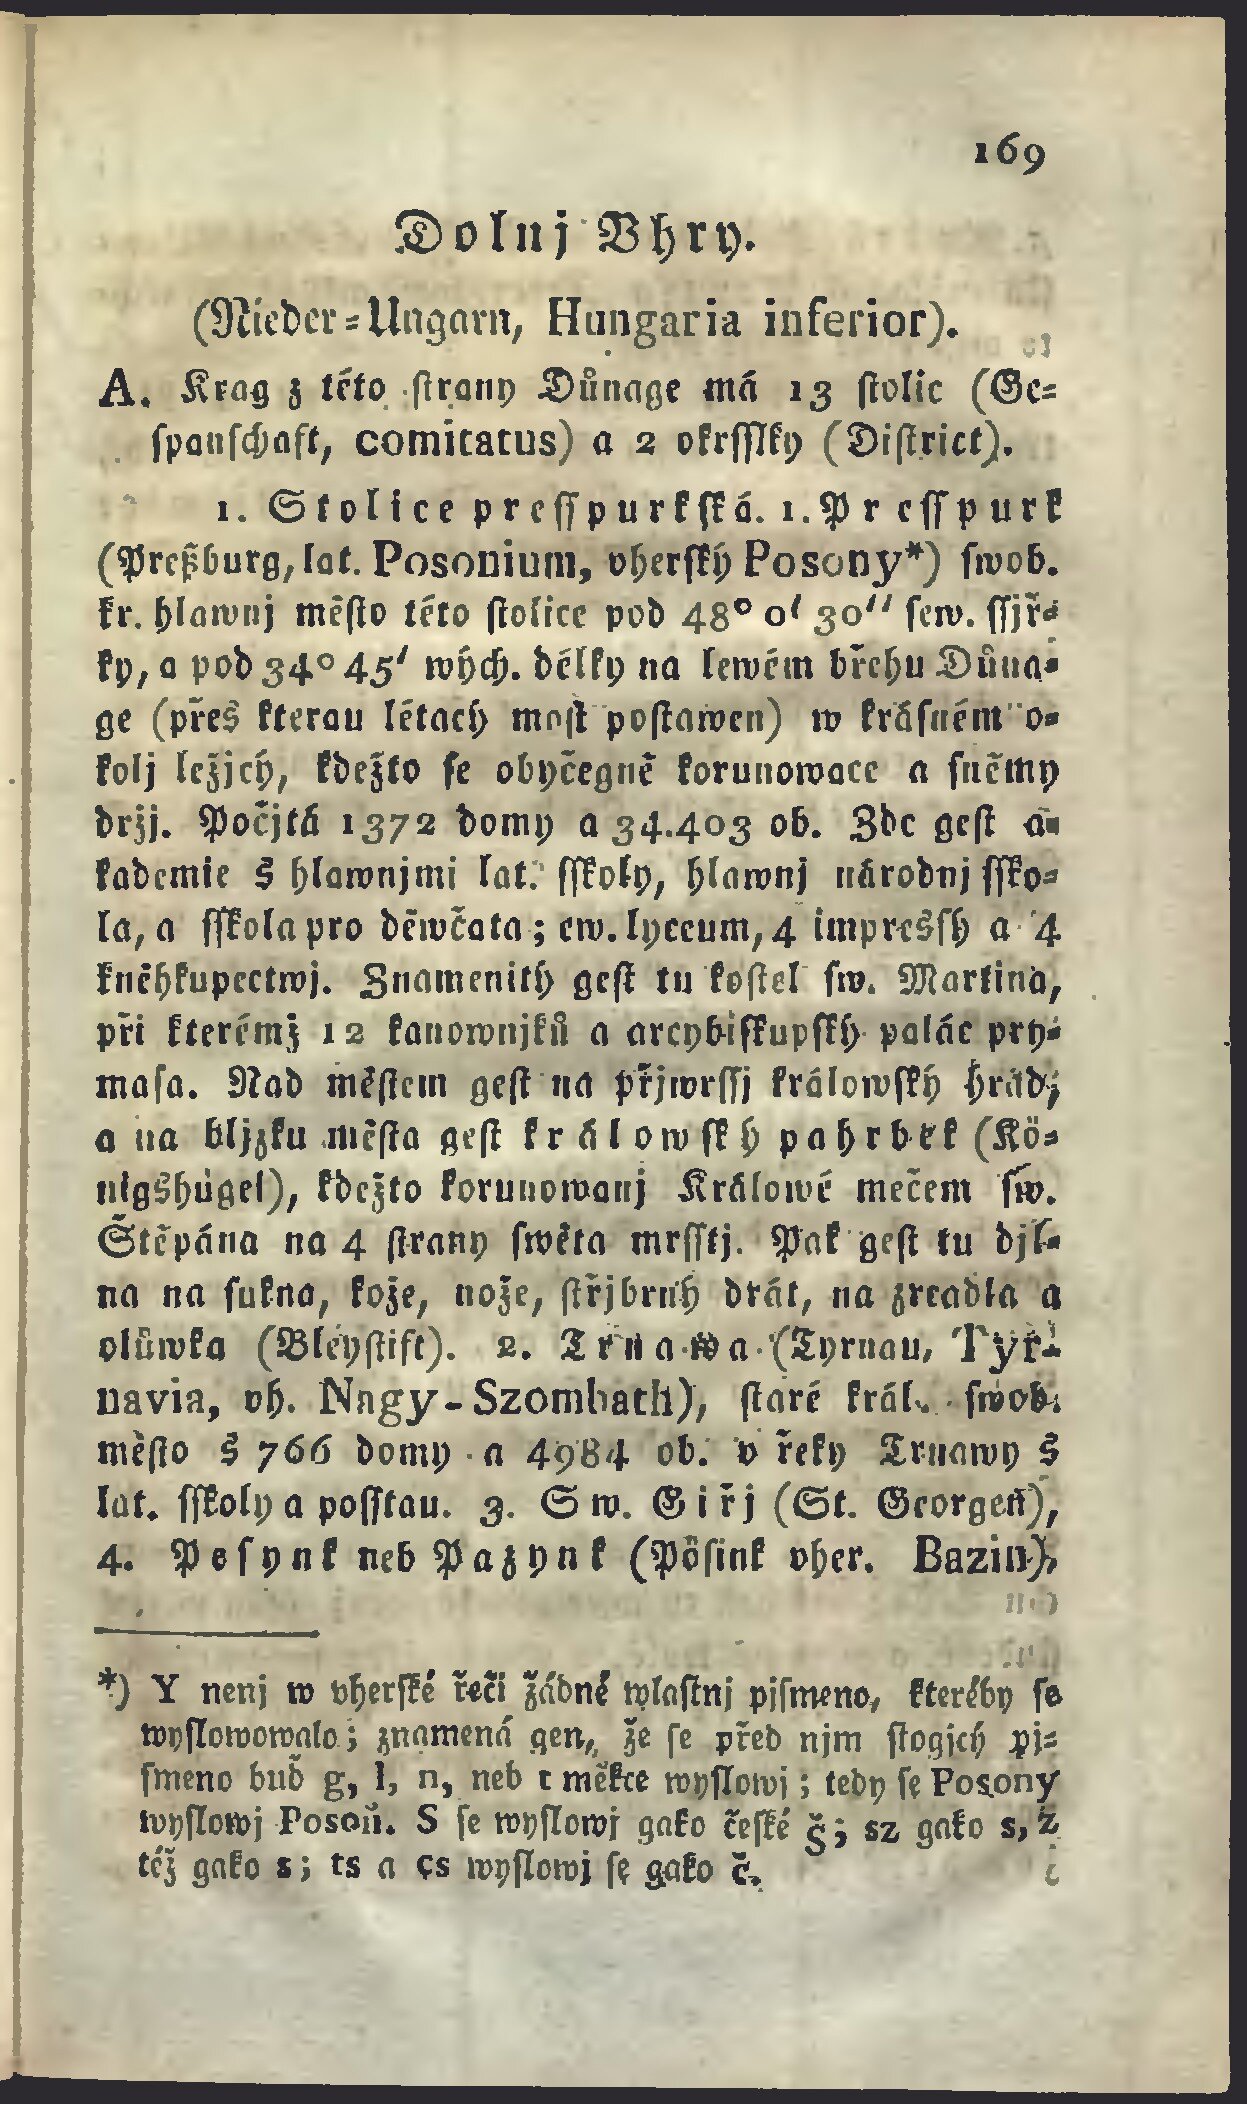 169
Dolnj Vhry.
(Nieder-Ungarn, Hungaria inferior).
A. Krag z této strany Důnage má 13 stolic (Ge-
spanschaft, comitatus) a 2 okrsslky (District).
1. Stolice presspurkská. 1. Presspurk
(Preßburg, lat. Posonium, vherský Posony*) swob.
kr. hlawnj město této stolice pod 48° 0' 30'' sew. ssjř-
ky, a pod 34° 45' wých. délky na lewém břehu Důna-
ge (přes kterau létach most postawen) w krásném o-
kolj ležjcý, kdežto se obyčegně korunowace a sněmy
držj. Počjtá 1372 domy a 34.403 ob. Zde gest a-
kademie s hlawnjmi lat. sskoly, hlawnj národnj ssko-
la, a sskola pro děwčata; ew. lyceum, 4 impressý a 4
kněhkupectwj. Znamenitý gest tu kostel sw. Martina,
při kterémž 12 kanownjků a arcybiskupský palác pry-
masa. Nad městem gest na přjwrssj králowský hrad;
a na bljzku města gest králowský pahrbek (Kö-
nigshügel), kdežto korunowanj Králowé mečem sw.
Štěpána na 4 strany swěta mrsstj. Pak gest tu djl-
na na sukna, kože, nože, střjbrný drát, na zrcadla a
olůwka (Bleystift). 2. Trnawa (Tyrnau, Tyr-
navia, vh. Nagy-Szombath), staré král. swob.
město s 766 domy a 4984 ob. v řeky Trnawy s
lat. sskoly a posstau. 3. Sw. Giřj (St. Georgen),
4. Pesynk neb Pazynk (Pösink vher. Bazin),
*) Y nenj w vherské řeči žádné wlastnj pjsmeno, kteréby se
wyslowowalo; znamená gen, že se před njm stogjcý pj-
smeno buď g, l, n, neb t měkce wyslowj; tedy se Posony
wyslowj Posoň. S se wyslowj gako české š; sz gako s, z
též gako s; ts a cs wyslowj se gako č.